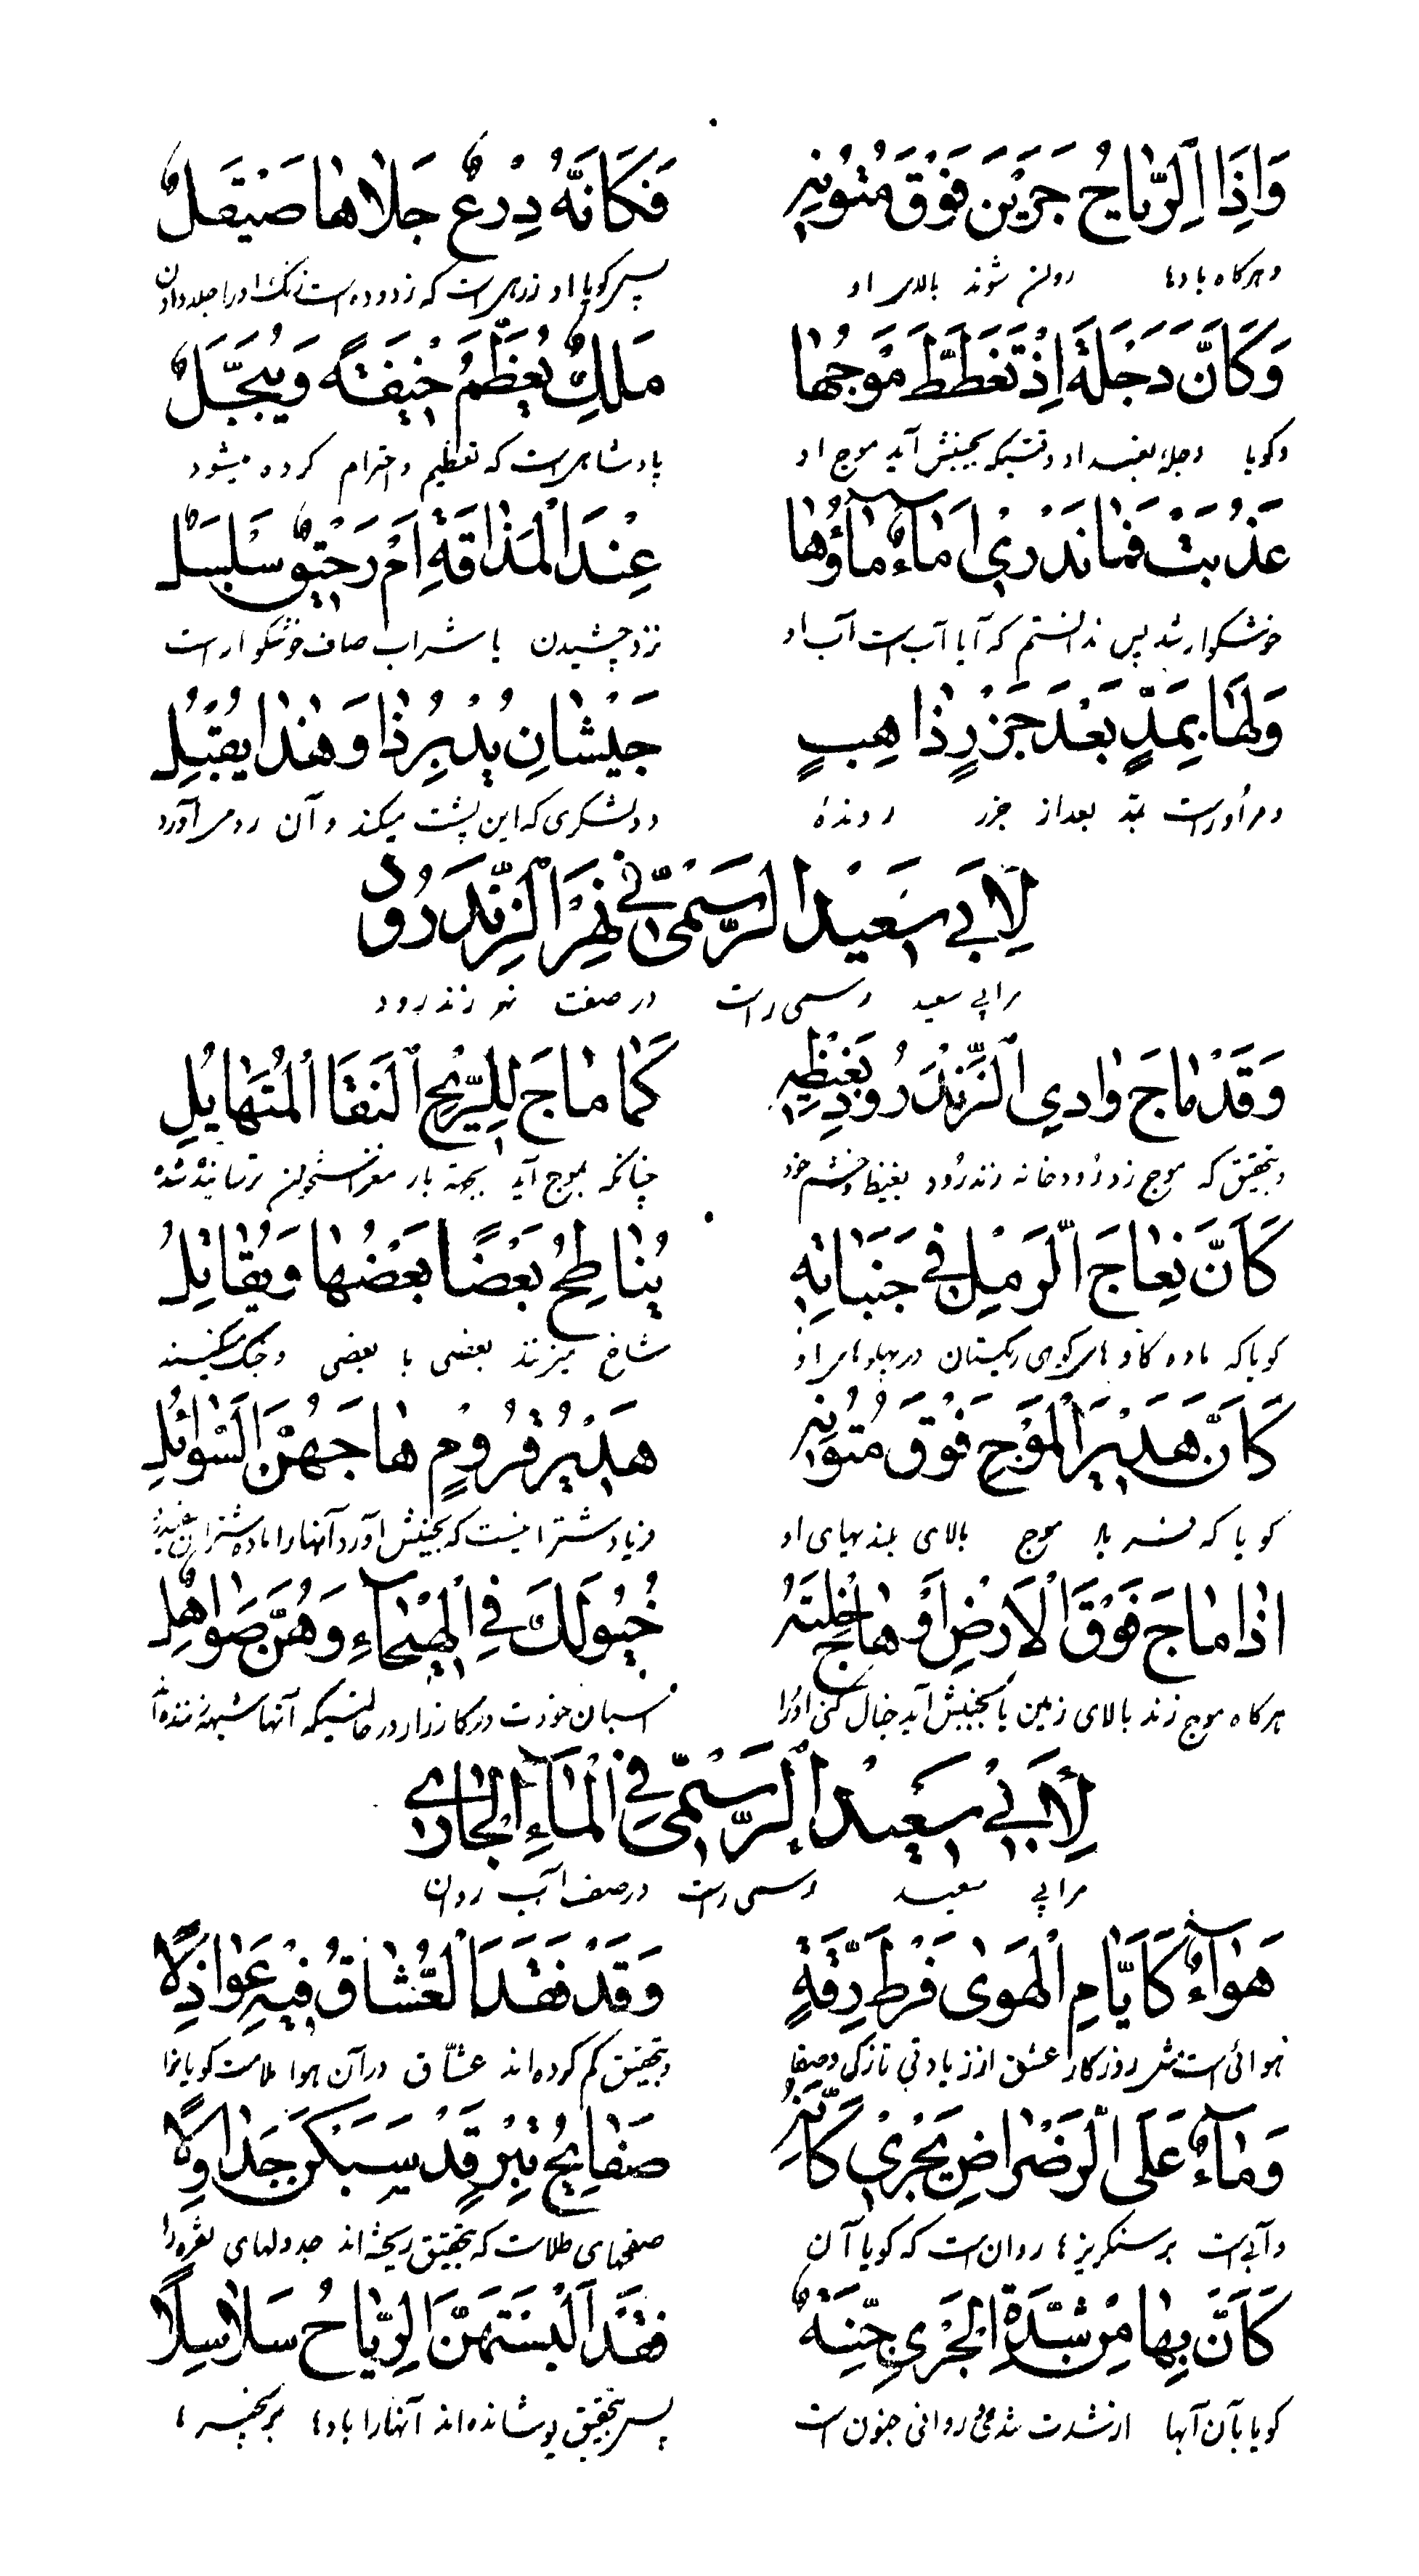 وَاِذَا الرِّيَاحُ جَرَيْنَ فَوْقَ مُتُونِهِ فَكَاَنَّهُ دِرْعٌ جَلَاهَا صَيْقَلٌ
و هرگاه بادها روان شوند بالای او پس گویا او زرهی است که زدوده است زنگ او را
وَكَاَنَّ دَجْلَةَ اِذْ تَغَطَّطَ مَوْجُهَا مَلِكٌ يُعَظَّمُ خِيفَتَةً وَيُبَجَّلُ
و گویا دجله بغداد وقتیکه بجنبش آید موج او پادشاهی است که تعظیم و احترام کرده میشود
عَذُبَتْ فَمَا نَدْرِي اَمَاءٌ مَاؤُهَا عِنْدَ الْمَذَاقَةِ اَمْ رَحِيقٌ سَلْسَلُ
خوشگوار شد پس ندانستم که آیا آب است آب او نزد چشیدن یا شراب صاف خوشگوار است
وَلَهَا بِمَدٍّ بَعْدَ جَزْرٍ ذَاهِبٍ جَيْشَانِ يُدْبِرُ ذَا وَهٰذَا يُقْبِلُ
و مر او راست بمد بعد از جزر رونده دو لشکری که این پشت میکند و آن رو می‌آورد
لِاَبِي سَعِيْدِ الرُّسْتَمِيِّ فِي نَهْرِ الزَّنْدَرُودِ
مر ابی سعید رستمی راست در صفت نهر زندرود
وَقَدْ مَاجَ وَادِي الزَّنْدَرُودِ بِغَيْظِهِ كَمَا مَاجَ لِلرِّيحِ النَّقَا الْمُتَهَايِلِ
و بتحقیق که موج زد رودخانه زندرود بغیظ و خشم خود چنانکه بموج آید بجهة باد
كَاَنَّ نِعَاجَ الرَّمْلِ فِي جَنَبَاتِهِ يُنَاطِحُ بَعْضًا بَعْضُهَا وَيُقَاتِلُ
گویا که ماده گاو های کوهی ریگستان در پهلوهای او شاخ میزنند بعضی با بعضی و جنگ میکنند
كَاَنَّ هَدِيرَ الْمَوْجِ فَوْقَ مُتُونِهِ هَدِيرُ قُرُومٍ هَاجَهُنَّ الشَّوَائِلِ
گویا که موج بالای بلندیهای او فریاد شترانیست که بجنبش آورد آنها را ماده شتران
اِذَا مَاجَ فَوْقَ الْاَرْضِ اَوْ هَاجَ خِلْتَهُ خُيُولَكَ فِي الْهَيْجَاءِ وَهُنَّ صَوَاهِلُ
هرگاه موج زند بالای زمین یا بجنبش آید خیال کنی او را اسبان خودت در کارزار در حالتیکه آنها شیهه زننده‌اند
لِاَبِي سَعِيْدِ الرُّسْتَمِيِّ فِي الْمَاءِ الْجَارِي
مر ابی سعید رستمی راست در صفت آب روان
هَوَاءٌ كَاَيَّامِ الْهَوٰى فَرْطَ رِقَّةٍ وَقَدْ فَقَدَ الْعُشَّاقُ فِيْهِ عَوَاذِلًا
هوائی است مثل روزگار عشق از زیادتی نازکی و صفا و بتحقیق گم کرده‌اند عشاق در آن هوا ملامت گویان را
وَمَاءٌ عَلَى الرَّضْرَاضِ يَجْرِي كَاَنَّهُ صَفَايِحُ تِبْرٍ قَدْ سَبَكْنَ جَدَاوِلًا
و آبی است بر سنگریزها روان است که گویا آن صفحهای طلاست که بتحقیق ریخته‌اند جدولهای نقره را
كَاَنَّ بِهَا مِنْ شِدَّةِ الْجَرْيِ جِنَّةٌ فَقَدْ اَلْبَسَتْهُنَّ الرِّيَاحُ سَلَاسِلًا
گویا بآن آبها از شدت روانی جنون است پس بتحقیق پوشانده‌اند آنها را بادها